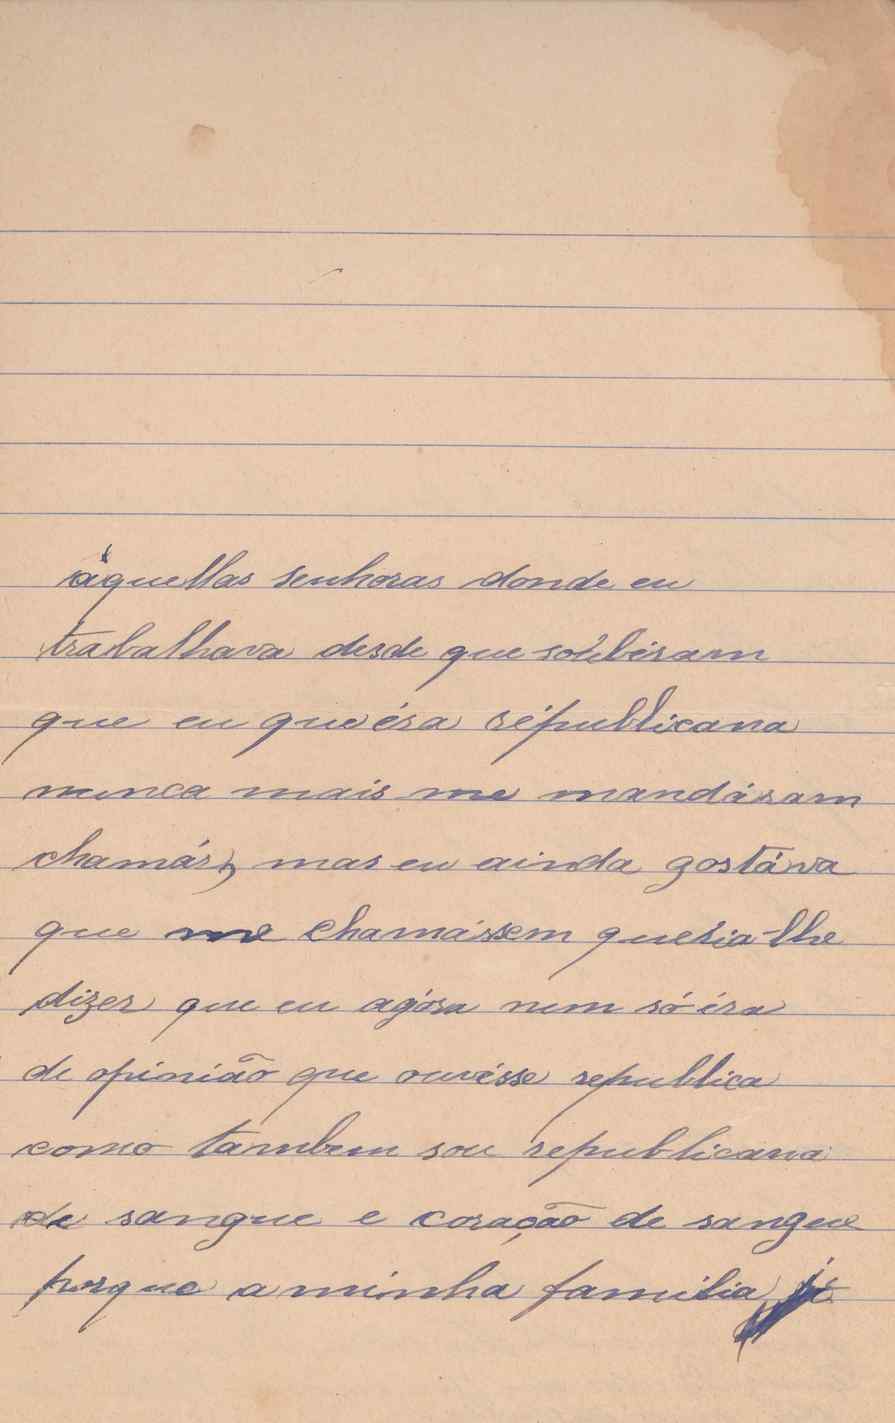 àquellas senhoras donde eu
trabalhava desde que soúberam
que eu que éra républicana
nunca mais me mandáram
chamár, mas eu ainda gostáva
que me chamássem queria-lhe
dizer que eu agóra num só éra
de opinião que ouvésse republica
como tambem sou republicana
de sangue e coração de sangue
porque a minha familia já